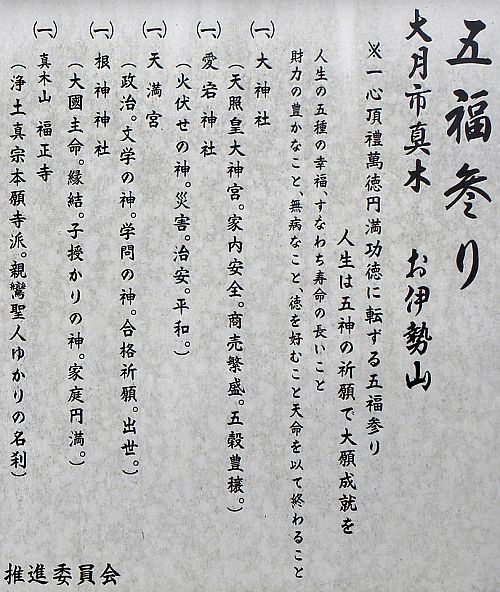 五福参り
大月市真木　お伊勢山
※一心頂禮萬徳円満功徳に転ずる五福参り
人生は五神の祈願で大願成就を
人生の五種の幸福、すなわち寿命の長いこと
財力の豊かなこと、無病なこと、徳を好むこと天命を以て終わること
㈠ 大神社
（天照皇大神宮。家内安全。商売繁盛。五穀豊穣。）
㈠ 愛宕神社
（火伏せの神。災害。治安。平和。）
㈠ 天満宮
（政治。文学の神。学問の神。合格祈願。出世。）
㈠ 根神神社
（大國主命。縁結。子授かりの神。家庭円満。）
㈠ 真木山　福正寺
（浄土真宗本願寺派。親鸞聖人ゆかりの名刹）
推進委員会